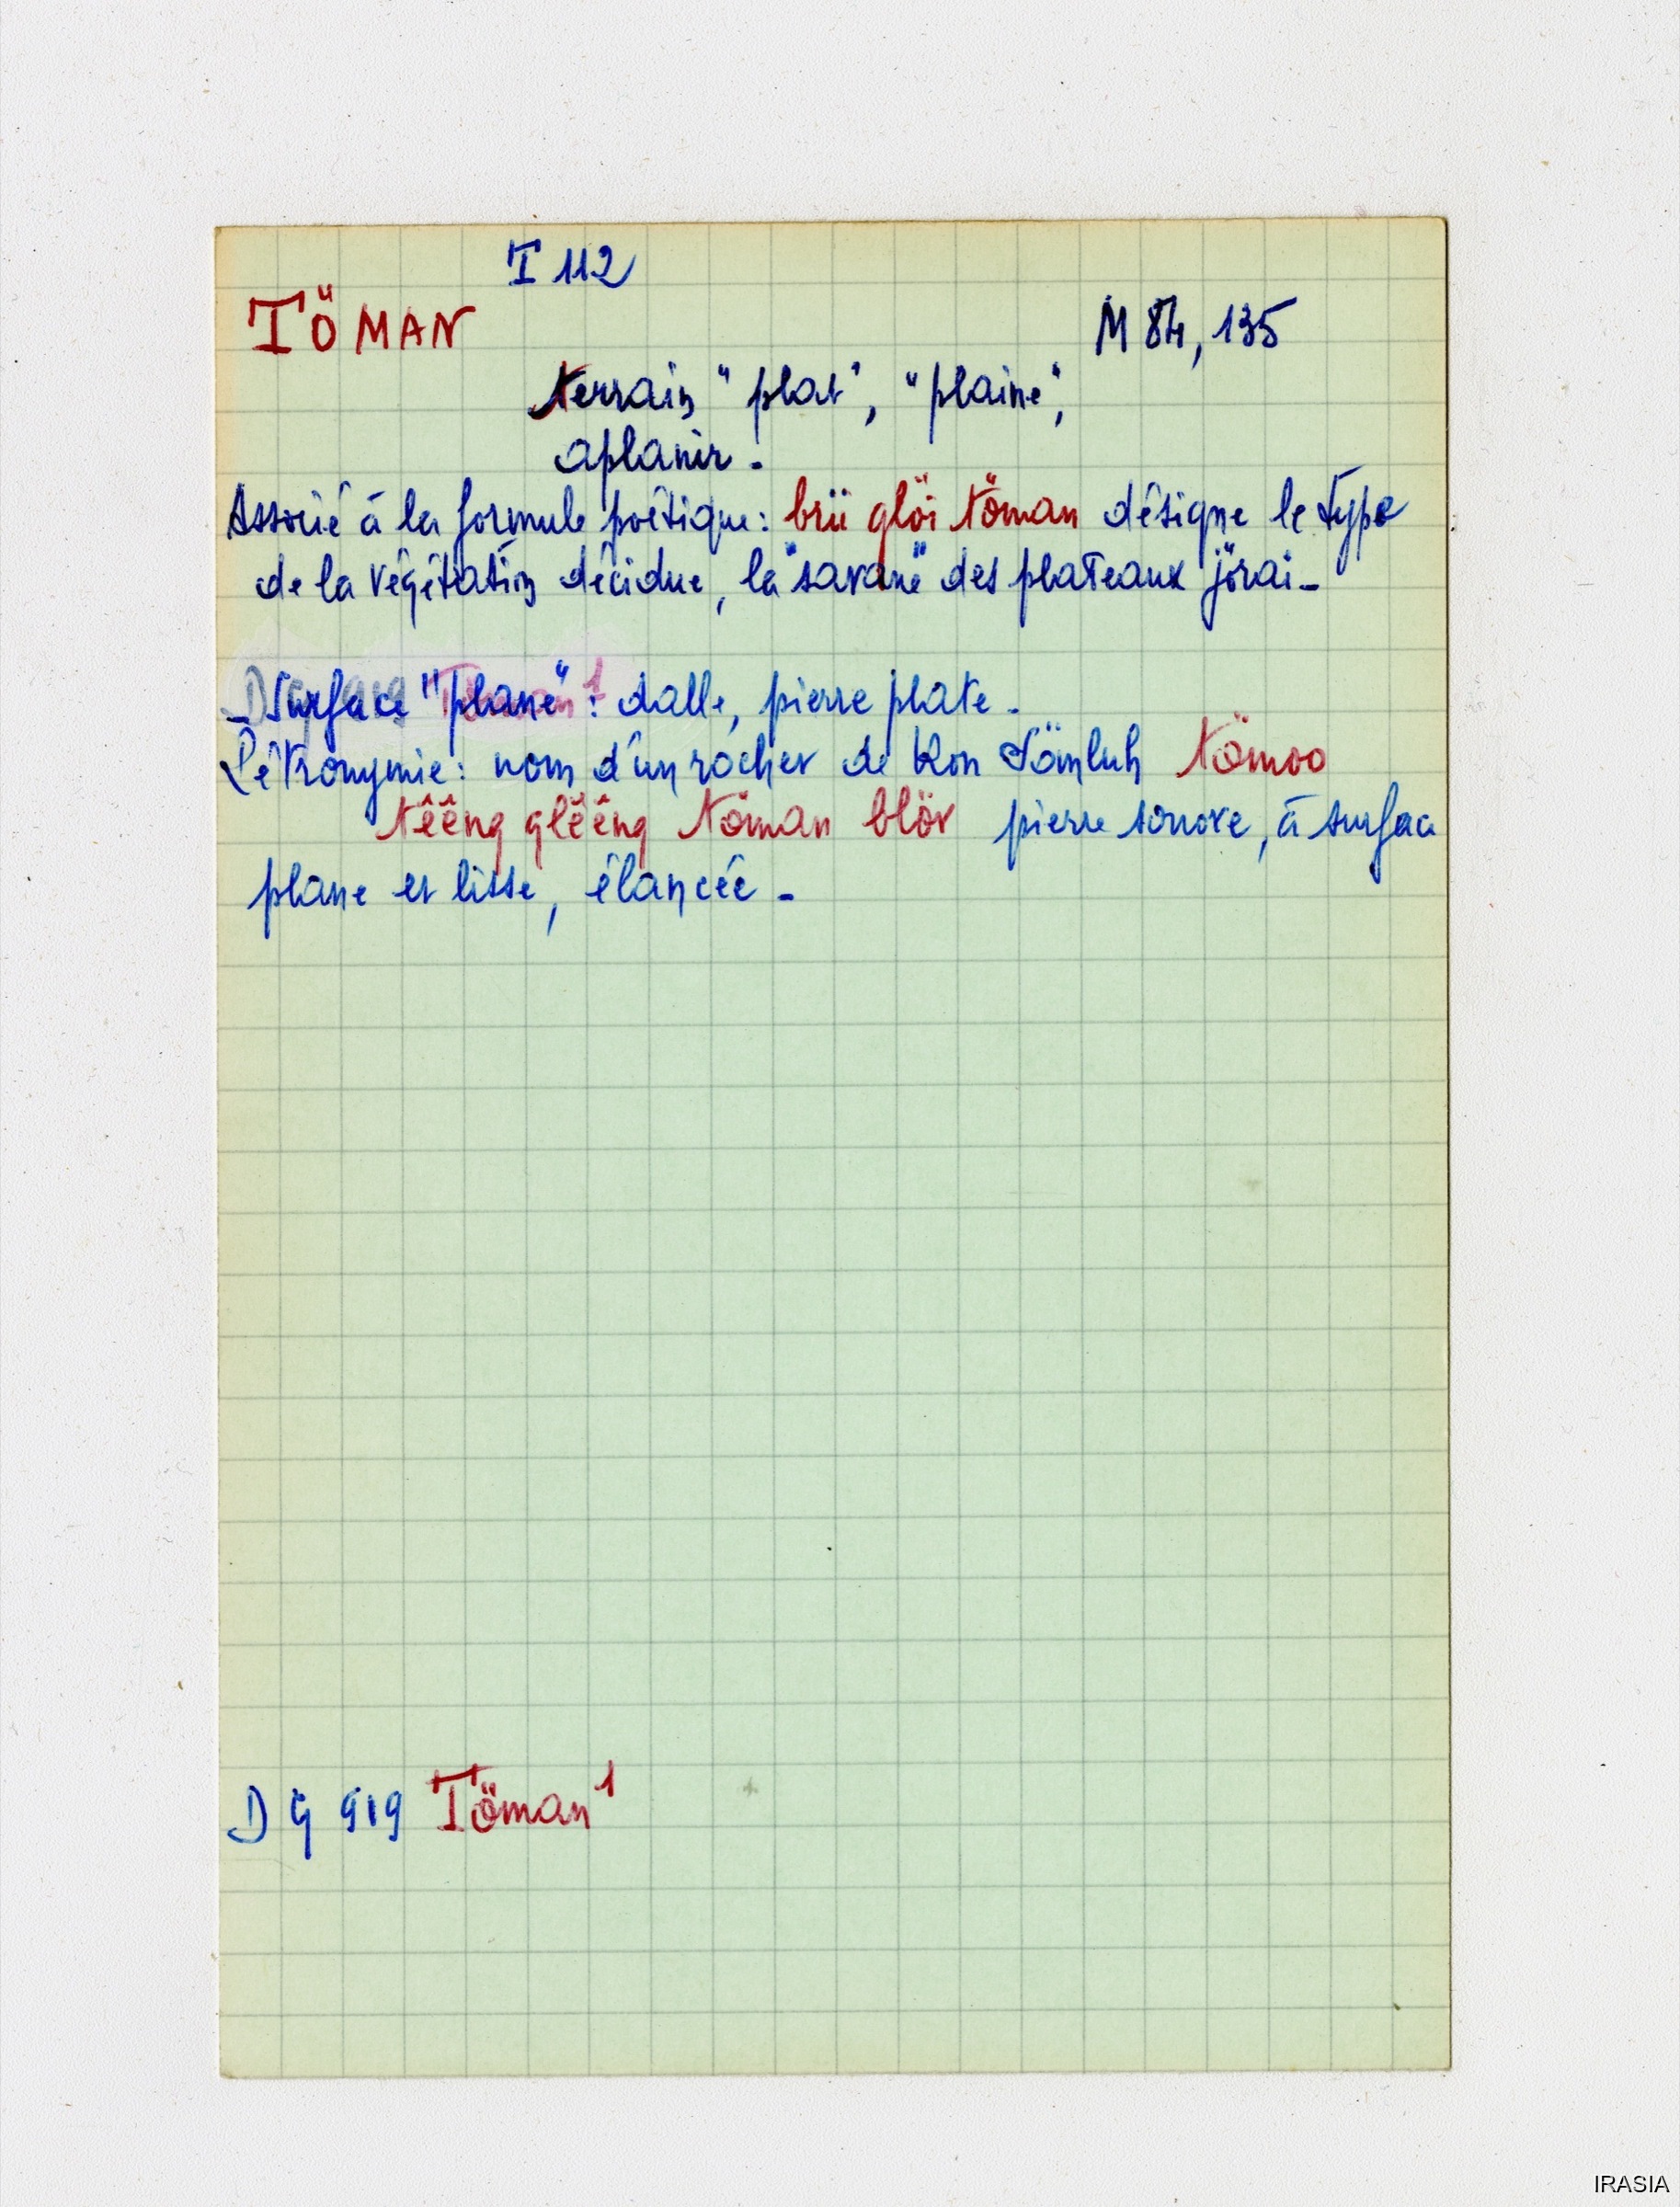 T 112
TÖMAN
M 84, 135
terrain "plat", "plaine",
aplanir.
Associé à la formule poétique: brii glöi töman désigne le type
de la végétation décidue, la "savane" des plateaux jörai-
- Surface "plane": dalle, pierre plate.
Pétronymie: nom d'un rocher de Kon Jömluh tömoo
têêng glêêng töman blör pierre sonore, à surface
plane et lisse, élancée -
DG 919 Töman¹
IRASIA